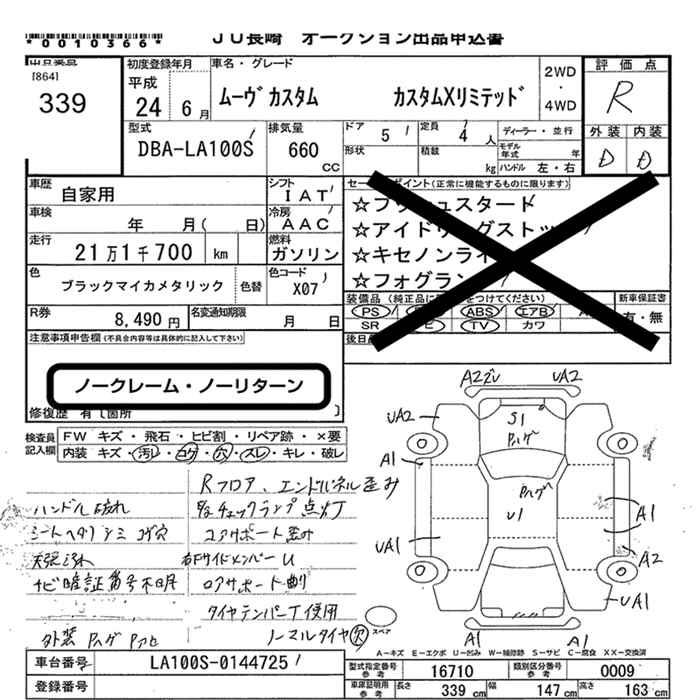 *0010366*
JU長崎 オークション出品申込書
出品番号
[864]
339
初度登録年月
平成
24年 6月
車名・グレード
ムーヴカスタム カスタムXリミテッド
2WD
・
4WD
評価点
R
外装 内装
D D
型式
DBA-LA100S
排気量
660
CC
ドア 5
定員 4人
ディーラー・並行
形状
積載 kg
モデル年式 年
ハンドル 左・右
車歴
自家用
シフト
IAT
車検
年 月( 日)
冷房
AAC
走行
21万1千700 km
燃料
ガソリン
色
ブラックマイカメタリック
色替
色コード
X07
R券
8,490円
名変通知期限
月 日
セールスポイント(正常に機能するものに限ります)
☆プッシュスタード
☆アイドリングストップ
☆キセノンライ
☆フォグラン
装備品(純正品に をつけてください)
新車保証書
PS ABS エアB
SR ビ TV カワ
有・無
後日
注意事項申告欄(不具合内容等は具体的に記入して下さい)
ノークレーム・ノーリターン
修復歴 有[箇所 ]
検査員
記入欄
FW キズ・飛石・ヒビ割・リペア跡・×要
内装 キズ・汚レ・コゲ・穴・スレ・キレ・破レ
Rフロア、エンドパネル歪み
ハンドル破れ
チェックランプ点灯
シートヘタリ シミ コゲ穴
コアサポート歪み
天張汚れ
右Fサイドメンバー U
ナビ暗証番号不明
ロアサポート曲り
タイヤテンパー1使用
外装
ノーマルタイヤ欠
スペア
A22U UA2
UA2
S1
ハゲ
A1
ハゲ
U1
A1
UA1
A2
UA1
A1 A1
A-キズ E-エクボ U-凹み W-補修跡 S-サビ C-腐食 XX-交換済
車台番号
LA100S-0144725
登録番号
型式指定番号
参考
16710
類別区分番号
参考
0009
車庫証明用
参考
長さ 339 cm
幅 147 cm
高さ 163 cm